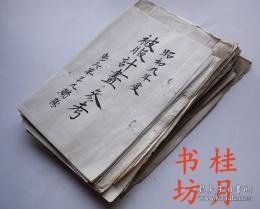 昭和九年度
被服計畫参考
歩兵第三九聯隊
桂月
书坊